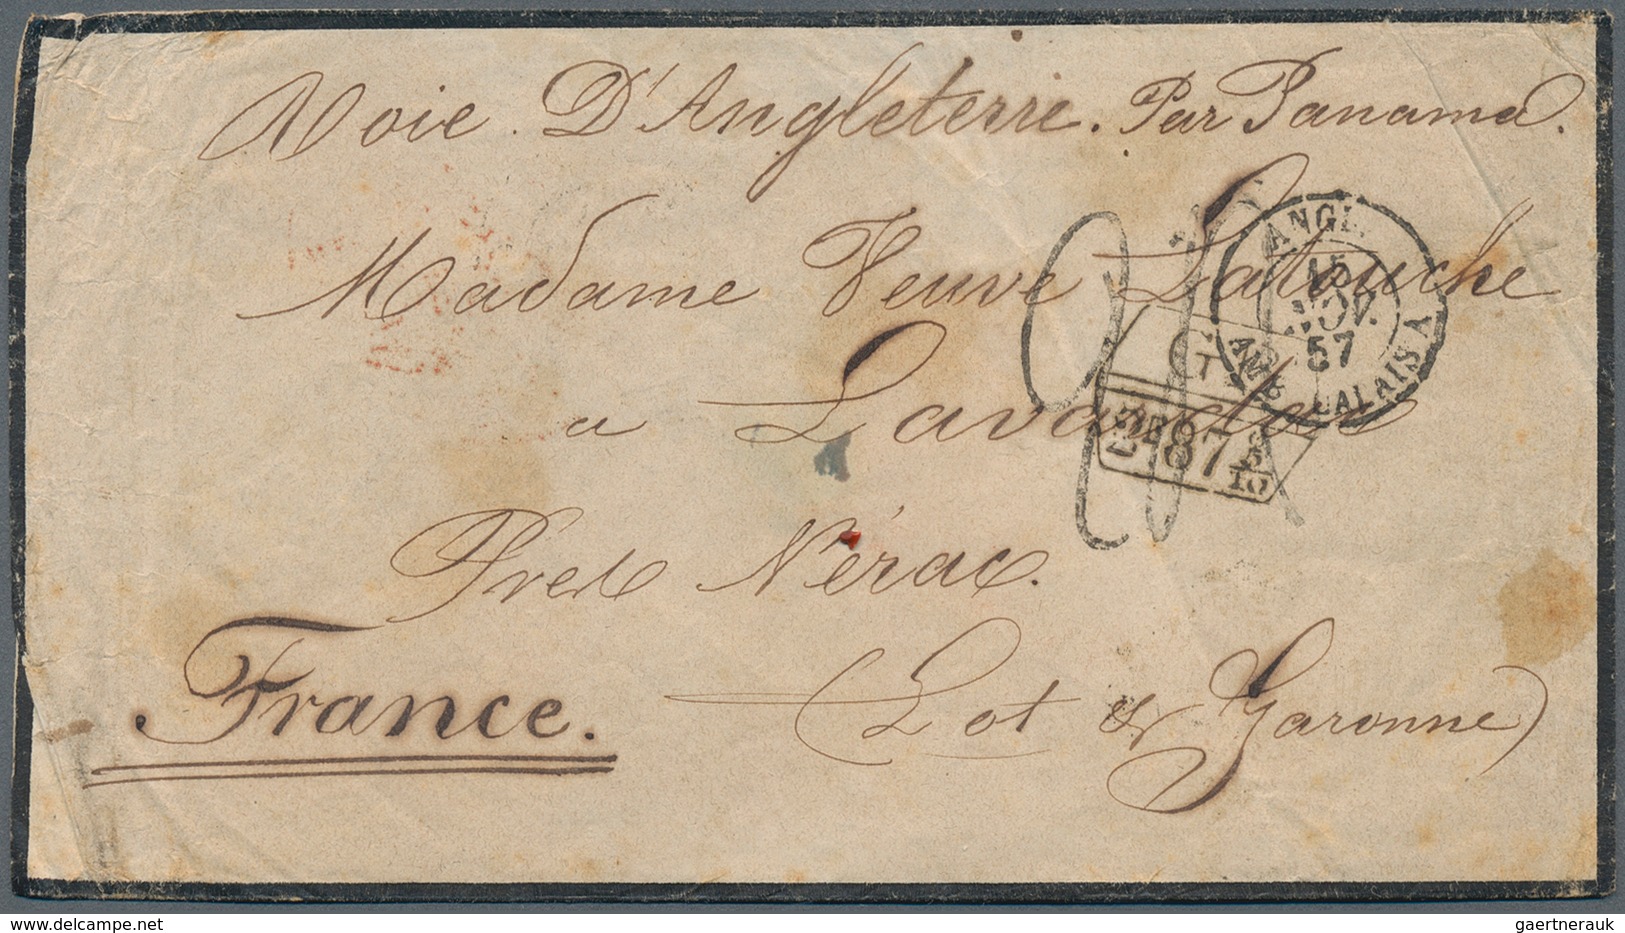 Voie D'Angleterre. Par Panama.
Madame Veuve Latouche
a Lavardac
Pres Nérac.
(Lot & Garonne)
France.
ANGL.
15
NOV.
57
AMB. CALAIS A
G
2E 87 5/10
delcampe.net
gaertnerauk